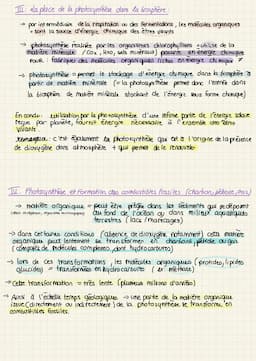 III. La place de la photosynthèse dans la biosphère.
→ par les intermédiaires de la respiration ou des fermentations, les molécules organiques
= sont la source d'énergie chimique des êtres vivants
→ photosynthèse réalisée par les organismes chlorophylliens : utilise de la
matière minérale (CO₂, H₂O, sels minéraux) puisent en énergie chimique
pour fabriquer des molécules organiques riches en énergie chimique
→ photosynthèse = permet le stockage d'énergie chimique dans la biosphère à
partir de matière minérale (= la photosynthèse permet donc l'entrée dans
la biosphère de matière minérale stockeuse de l'énergie sous forme chimique)
En conclu : utilisation par la photosynthèse d'une infime partie de l'énergie solaire
reçue par planète, fournit énergie nécessaire à l'ensemble des êtres
vivants.
Remarque : c'est également la photosynthèse qui est à l'origine de la présence
de dioxygène dans atmosphère + qui permet de le renouveler
IV. Photosynthèse et formation des combustibles fossiles (charbon, pétrole, gaz)
→ matière organique = peut être piégée dans les sédiments qui se déposent
au fond de l'océan ou dans milieux aquatiques
terrestres (lacs / marécages)
→ dans certaines conditions (absence de dioxygène notamment) cette matière
organique peut lentement se transformer en charbon, pétrole ou gaz
(composés de molécules complexes dont hydrocarbures)
→ lors de ces transformations, les molécules organiques (protides, lipides
glucides) = transformées en hydrocarbures
→ Cette transformation = très lente (plusieurs millions d'années)
→ Ainsi à l'échelle temps géologique → une partie de la matière organique
issue (directement ou indirectement) de la photosynthèse se transforme en
combustibles fossiles.